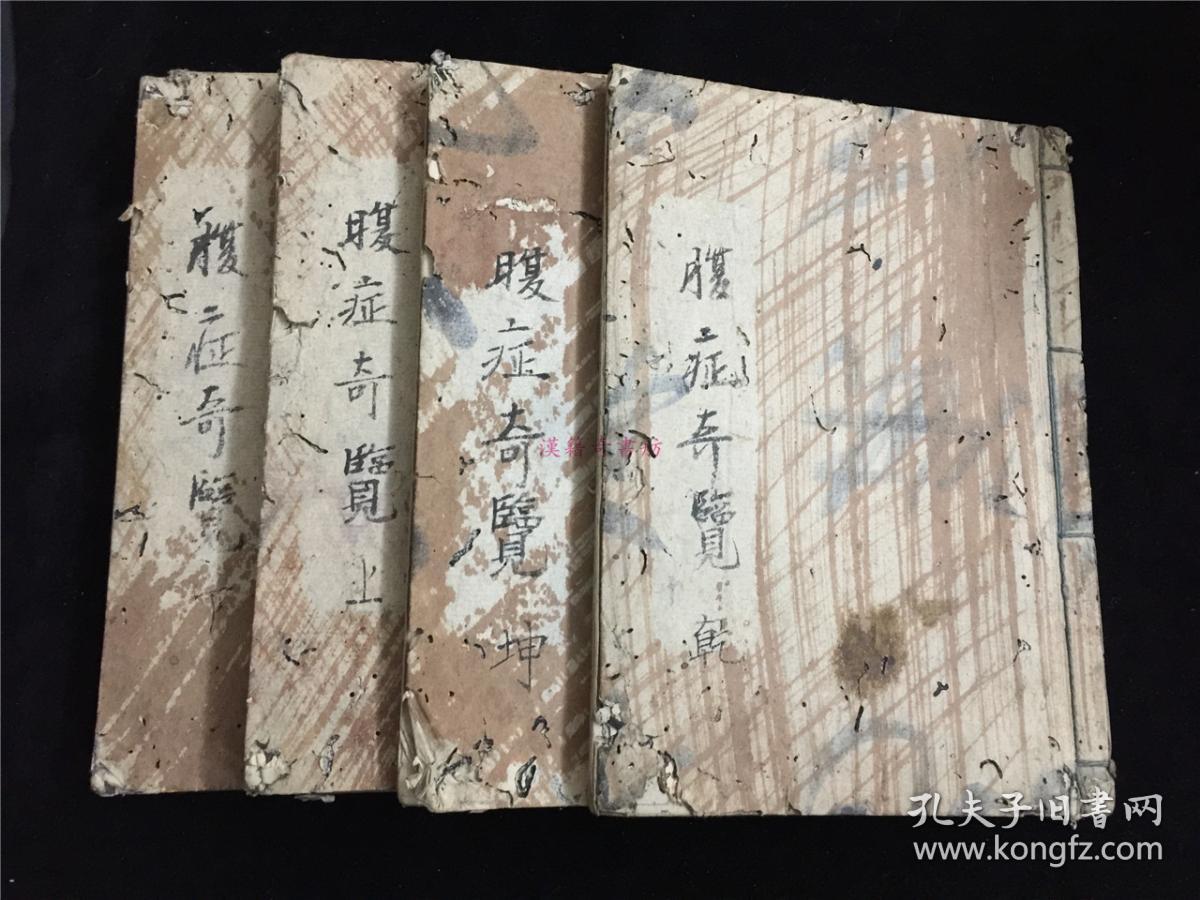 腹症奇覽 乾
腹症奇覽 坤
腹症奇覽 上
腹症奇覽 下
漢籍古書坊
孔夫子旧书网
www.kongfz.com